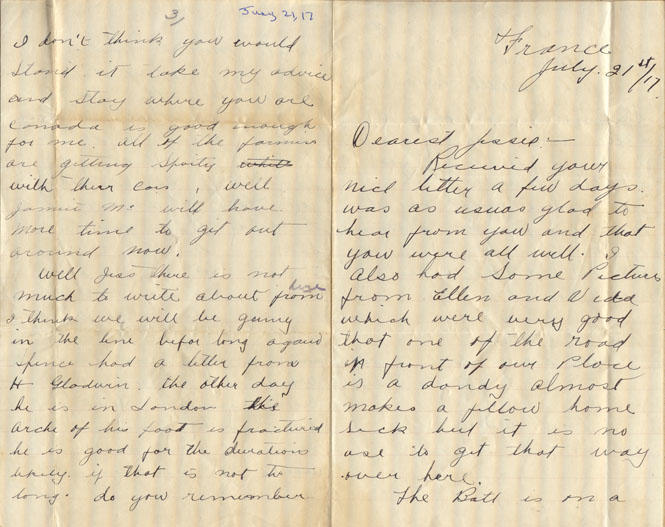 3,
July 21, 17
I don't think you would
stand it take my advice
and stay where you are
Canada is good enough
for me. all of the farmers
are getting sporty
with their cars, well
Jamie Mc will have
more time to get out
around now.
Well Jess there is not
much to write about from here
I think we will be going
in the line befor long again
Spence had a letter from
H Gladwin. the other day
he is in London the
arche of his foot is fractured
he is good for the durations
likely. if that is not to
long. do you remember
France
July. 21st/17.
Dearest Jessie:-
Received your
nice letter a few days.
was as usual glad to
hear from you and that
you were all well. I
also had some Pictures
from Ellen and Vida
which were very good
that one of the road
in front of our Place
is a dandy almost
makes a fellow home
sick but it is no
use to get that way
over here.
The Batt is on a